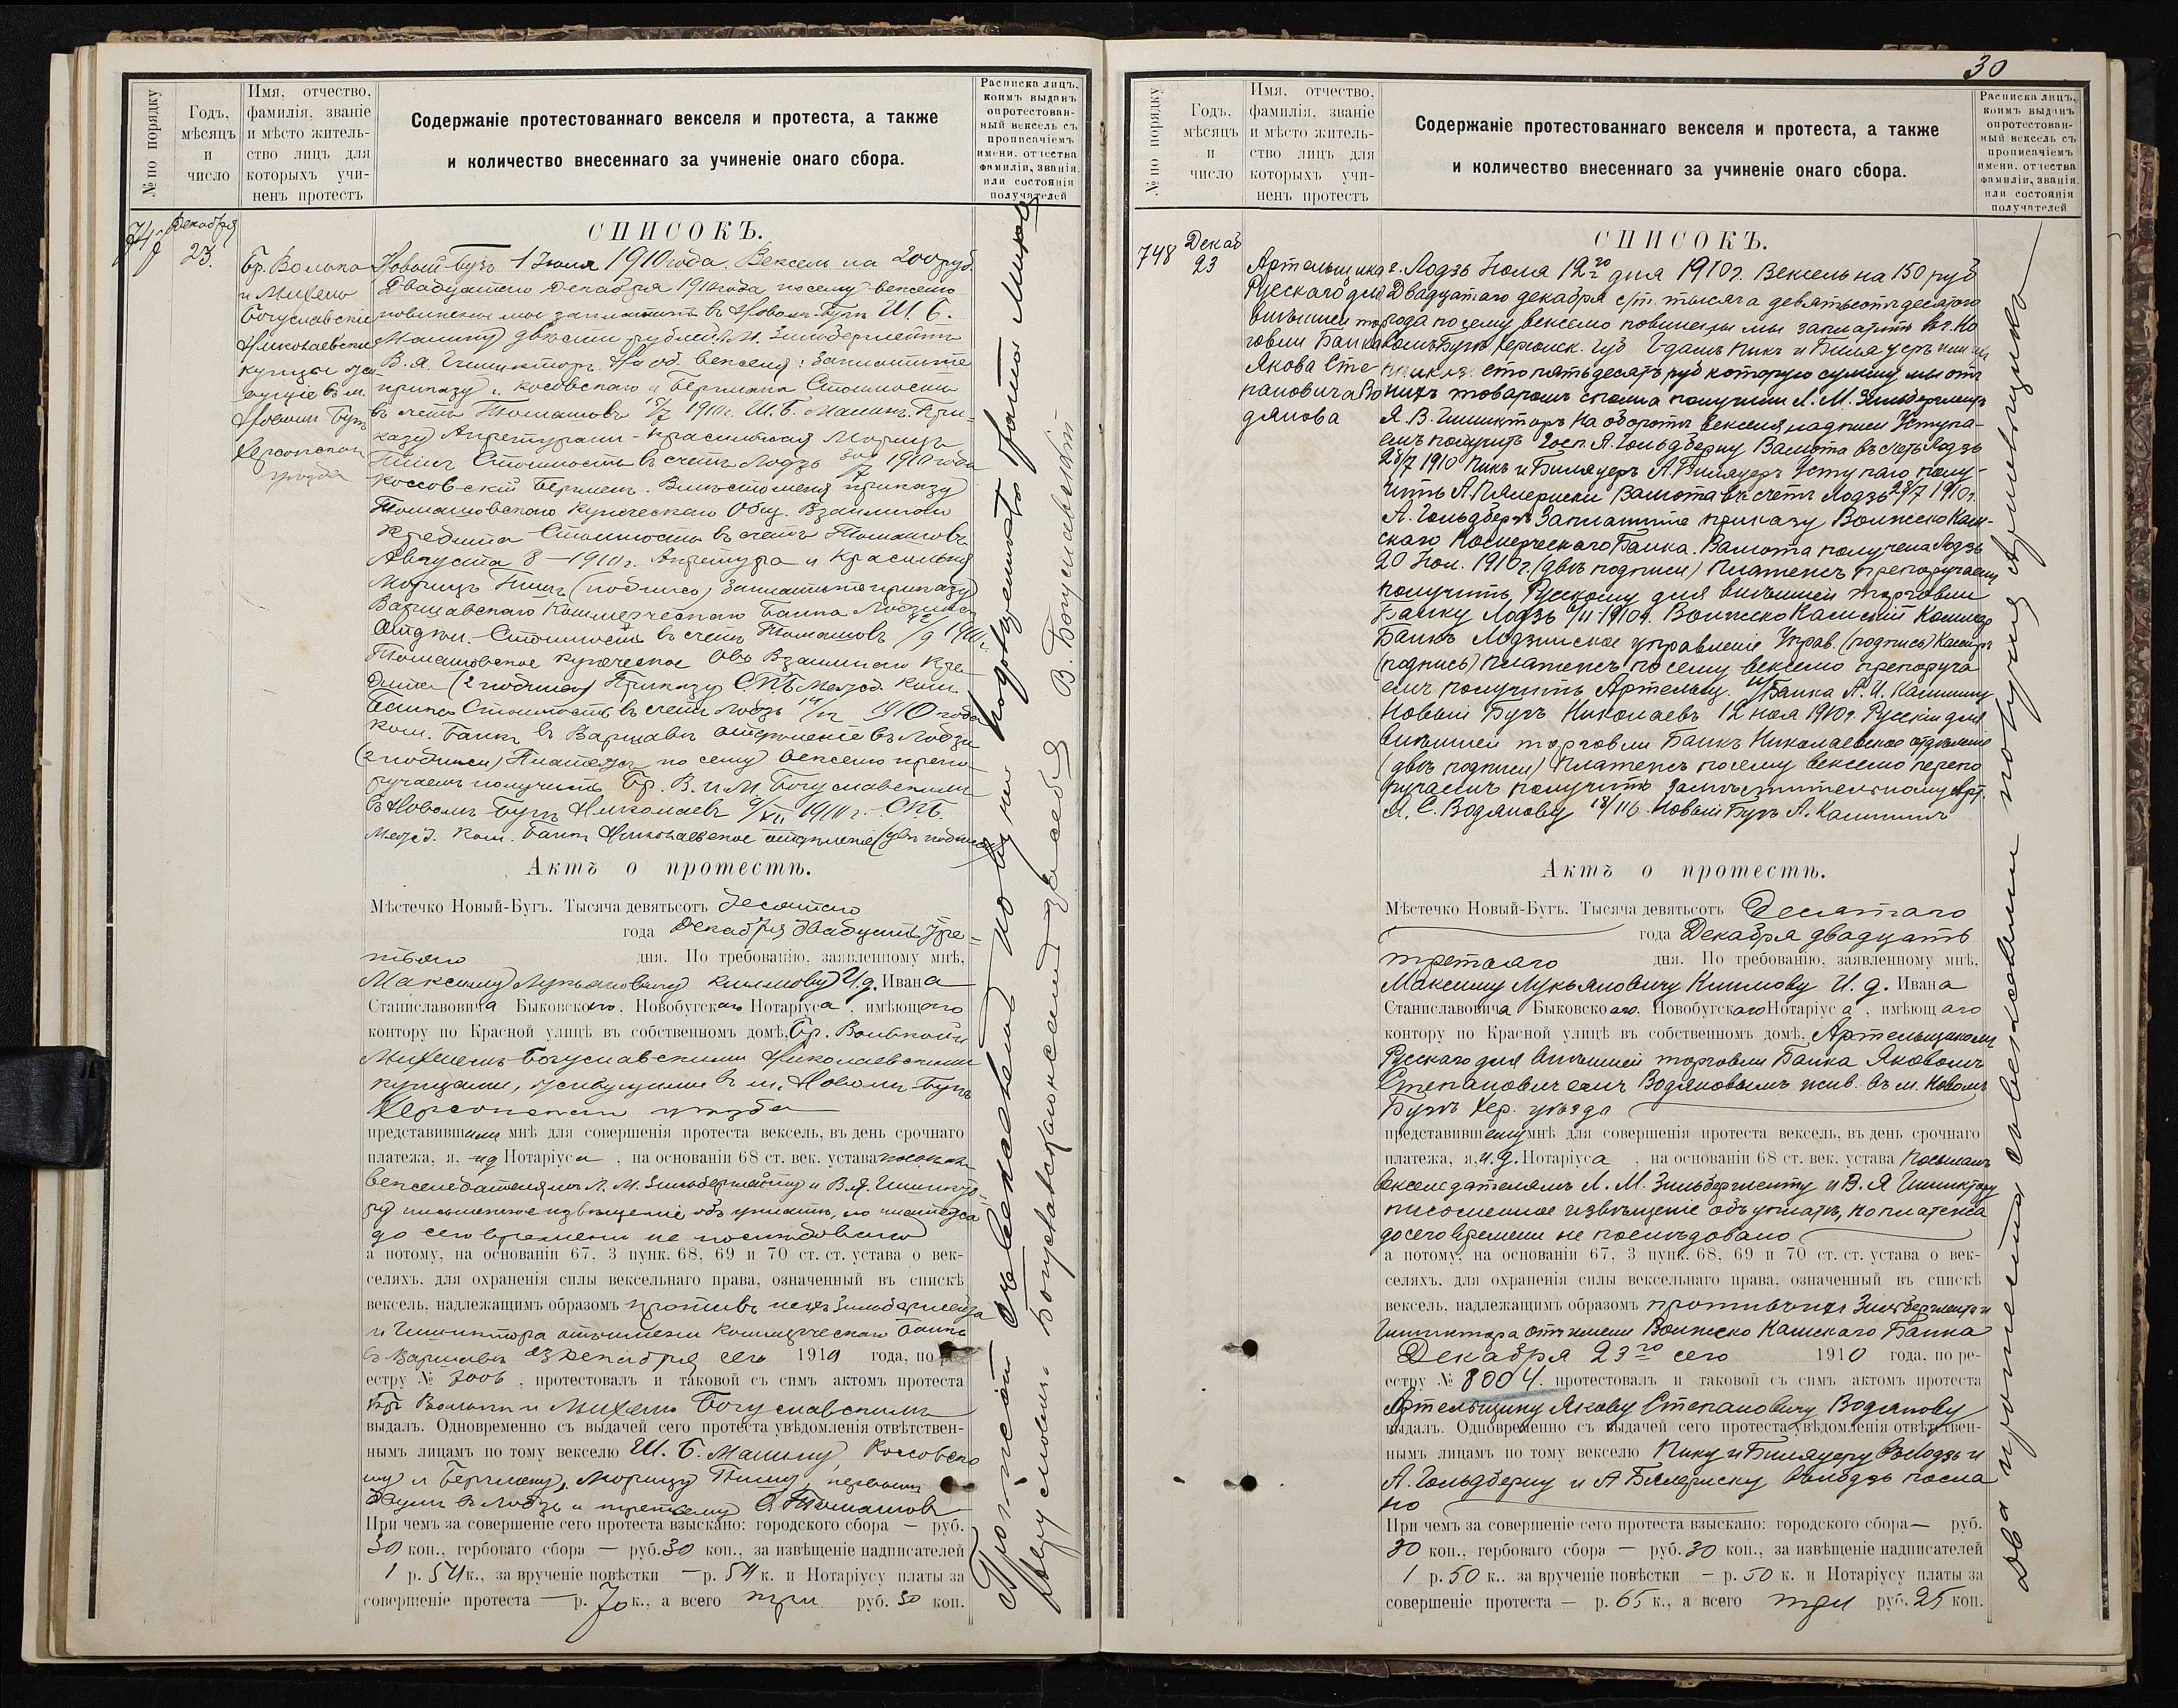 № по порядку
Годъ,
мѣсяцъ
и
число
Имя, отчество,
фамилія, званіе
и мѣсто житель-
ство лицъ для
которыхъ учи-
ненъ протестъ
Содержаніе протестованнаго векселя и протеста, а также
и количество внесеннаго за учиненіе онаго сбора.
Расписка лицъ,
коимъ выданъ
опротестован-
ный вексель съ
прописаніемъ
имени, отчества
фамиліи, званія,
или состоянія
получателей
747
Декабря
23.
Бр. Волько
и Михель
Богуславскіе
Николаевскіе
купцы жи-
вущіе въ м.
Новомъ Бугѣ
Херсонскаго
уѣзда
СПИСОКЪ.
Новый-Бугъ 1 Іюля 1910 года. Вексель на 200 руб.
Двадцатаго Декабря 1910 года по сему векселю
повинны мы заплатить въ Новомъ-Бугѣ Ш. Б.
Малину двѣсти рублей Л. М. Зильберментъ
В. Я. Шпинкторъ. На об. векселя: Заплатите
приказу Косовскаго и Берлмана Стоимость
въ счетъ Томашовъ 1910 г. Ш. Б. Малинъ. При-
казу Апретурами-Красильная Морицъ
Пишъ Стоимость въ счетъ Лодзь 1910 года
Коссовскій Берлмен. Вмѣсто меня приказу
Томашовскаго Купеческаго Общ. Взаимнаго
Кредита Стоимость въ счетъ Томашовъ
Августа 8 - 1910 г. Апретура и Красильня
Морицъ Пишъ (подпись) Заплатите приказу
Варшавскаго Коммерческаго Банка Лодзинск
Отдѣл. - Стоимость въ счетъ Томашовъ /9 1910 г.
Томашовское купеческое Общ Взаимнаго Кре-
дита (2 подписи) Приказу С.П.Б. Межд. Ком.
Банка Стоимость въ счетъ Лодзь 1910 года
Ком. Банкъ въ Варшавѣ отдѣленіе въ Лодзи
(2 подписи) Платежъ по сему векселю препо-
ручаемъ получить Бр. В. и М. Богуславскимъ
въ Новомъ Бугѣ Николаевъ 9/XII 1910 г. С.П.Б.
Межд. Ком. Банкъ Николаевское отдѣленіе (двѣ подписи)
Актъ о протестѣ.
Мѣстечко Новый-Бугъ. Тысяча девятьсотъ десятаго
года Декабря двадцать тре-
тьяго дня. По требованію, заявленному мнѣ,
Максиму Лукьяновичу Климову И. д. Ивана
Станиславовича Быковскаго, Новобугскаго Нотаріуса, имѣющаго
контору по Красной улицѣ въ собственномъ домѣ, Бр. Волькой и
Михелемъ Богуславскими Николаевскими
купцами, живущими въ м. Новомъ-Бугѣ
Херсонскаго уѣзда
представившими мнѣ для совершенія протеста вексель, въ день срочнаго
платежа, я, ид Нотаріуса, на основаніи 68 ст. век. устава посылалъ
векселедателямъ Л. М. Зильберменту и В. Я. Шпинкто-
ру письменное извѣщеніе объ уплатѣ, но платежа
до сего времени не послѣдовало
а потому, на основаніи 67, 3 пунк. 68, 69 и 70 ст. ст. устава о век-
селяхъ, для охраненія силы вексельнаго права, означенный въ спискѣ
вексель, надлежащимъ образомъ противъ нихъ Зильбермента
и Шпинктора отъ имени Коммерческаго Банка
въ Варшавѣ 23 Декабря сего 1910 года, по ре-
естру № 8006, протестовалъ и таковой съ симъ актомъ протеста
Бр. Волькѣ и Михелю Богуславскимъ
выдалъ. Одновременно съ выдачей сего протеста увѣдомленія отвѣтствен-
нымъ лицамъ по тому векселю Ш. Б. Малину, Коссовско
му и Берлмену, Морицу Пишу, первымъ
двумъ въ Лодзь и третьему въ Томашовъ
При чемъ за совершеніе сего протеста взыскано: городского сбора — руб.
30 коп., гербоваго сбора — руб. 30 коп., за извѣщеніе надписателей
1 р. 50 к., за врученіе повѣстки — р. 50 к. и Нотаріусу платы за
совершеніе протеста — р. 70 к., а всего три руб. 30 коп.
Протестъ съ векселемъ получилъ
В. Богуславскій
30
№ по порядку
Годъ,
мѣсяцъ
и
число
Имя, отчество,
фамилія, званіе
и мѣсто житель-
ство лицъ для
которыхъ учи-
ненъ протестъ
Содержаніе протестованнаго векселя и протеста, а также
и количество внесеннаго за учиненіе онаго сбора.
Расписка лицъ,
коимъ выданъ
опротестован-
ный вексель съ
прописаніемъ
имени, отчества
фамиліи, званія,
или состоянія
получателей
748
Декаб
23
Артельщика
Русскаго для
внѣшней тор
говли Банка
Якова Сте
пановича Во
дянова
СПИСОКЪ.
г. Лодзь Іюля 12го дня 1910 г. Вексель на 150 руб
Двадцатаго декабря с/г. тысяча девятьсотъ десятаго
года по сему векселю повинны мы заплатить въ г. Но
вомъ Бугѣ Херсонск. губ Г-дамъ Пикъ и Билауеръ или их
приказу сто пятьдесятъ руб которую сумму мы отъ
нихъ товаромъ сполна получили Л. М. Зильберментъ
Я. В. Шпинкторъ На оборотѣ векселя надписи Уступа-
емъ получить Госп. А. Гольдбергу Валюта въ счетъ Лодзь
28/7 1910 Пикъ и Билауеръ А. Билауеръ Уступаю полу-
чить А. Валюта въ счетъ Лодзь 28/7 1910 г.
А. Гольдбергъ Заплатите приказу Волжско Кам-
скаго Коммерческаго Банка. Валюта получена Лодзь
20 Іюл. 1910 г. (двѣ подписи) Платежъ препоручаемъ
получить Русскому для внѣшней торговли
Банку Лодзь /11-1910 г. Волжско Камскій Коммер
Банкъ Лодзинское управленіе Управ. (подпись) Кассиръ
(подпись) Платежъ по сему векселю препоруча
емъ получить Артельщ. Банка А. И. Калинину
Новый Бугъ Николаевъ 12 ноя 1910 г. Русскій для
внѣшней торговли Банкъ Николаевское отдѣленіе
(двѣ подписи) Платежъ по сему векселю перепо
ручаемъ получить замѣстительному Арт.
Я. С. Водянову Новый Бугъ А. Калининъ
Актъ о протестѣ.
Мѣстечко Новый-Бугъ. Тысяча девятьсотъ Десятаго
года Декабря двадцать
третьяго дня. По требованію, заявленному мнѣ,
Максиму Лукьяновичу Климову И. д. Ивана
Станиславовича Быковскаго, Новобугскаго Нотаріуса, имѣющаго
контору по Красной улицѣ въ собственномъ домѣ, Артельщикомъ
Русскаго для Внѣшней торговли Банка Яковомъ
Степановичемъ Водяновымъ жив. въ м. Новомъ
Бугѣ Хер. уѣзда
представившему мнѣ для совершенія протеста вексель, въ день срочнаго
платежа, я, и. д. Нотаріуса, на основаніи 68 ст. век. устава посылалъ
векселедателямъ Л. М. Зильберменту и В. Я Шпинктору
письменное извѣщеніе объ уплатѣ, но платежа
до сего времени не послѣдовало
а потому, на основаніи 67, 3 пунк. 68, 69 и 70 ст. ст. устава о век-
селяхъ, для охраненія силы вексельнаго права, означенный въ спискѣ
вексель, надлежащимъ образомъ противъ нихъ Зильбермента и
Шпинктора отъ имени Волжско Камскаго Банка
Декабря 23го сего 1910 года, по ре-
естру № 8004. протестовалъ и таковой съ симъ актомъ протеста
Артельщику Якову Степановичу Водянову
выдалъ. Одновременно съ выдачей сего протеста увѣдомленія отвѣтствен-
нымъ лицамъ по тому векселю Пику и Билауеру въ Лодзь и
А. Гольдбергу и А въ Лодзь посла
но
При чемъ за совершеніе сего протеста взыскано: городского сбора — руб.
30 коп., гербоваго сбора — руб. 30 коп., за извѣщеніе надписателей
1 р. 50 к., за врученіе повѣстки — р. 50 к. и Нотаріусу платы за
совершеніе протеста — р. 65 к., а всего три руб. 25 коп.
Два протеста съ векселями получилъ Артельщикъ